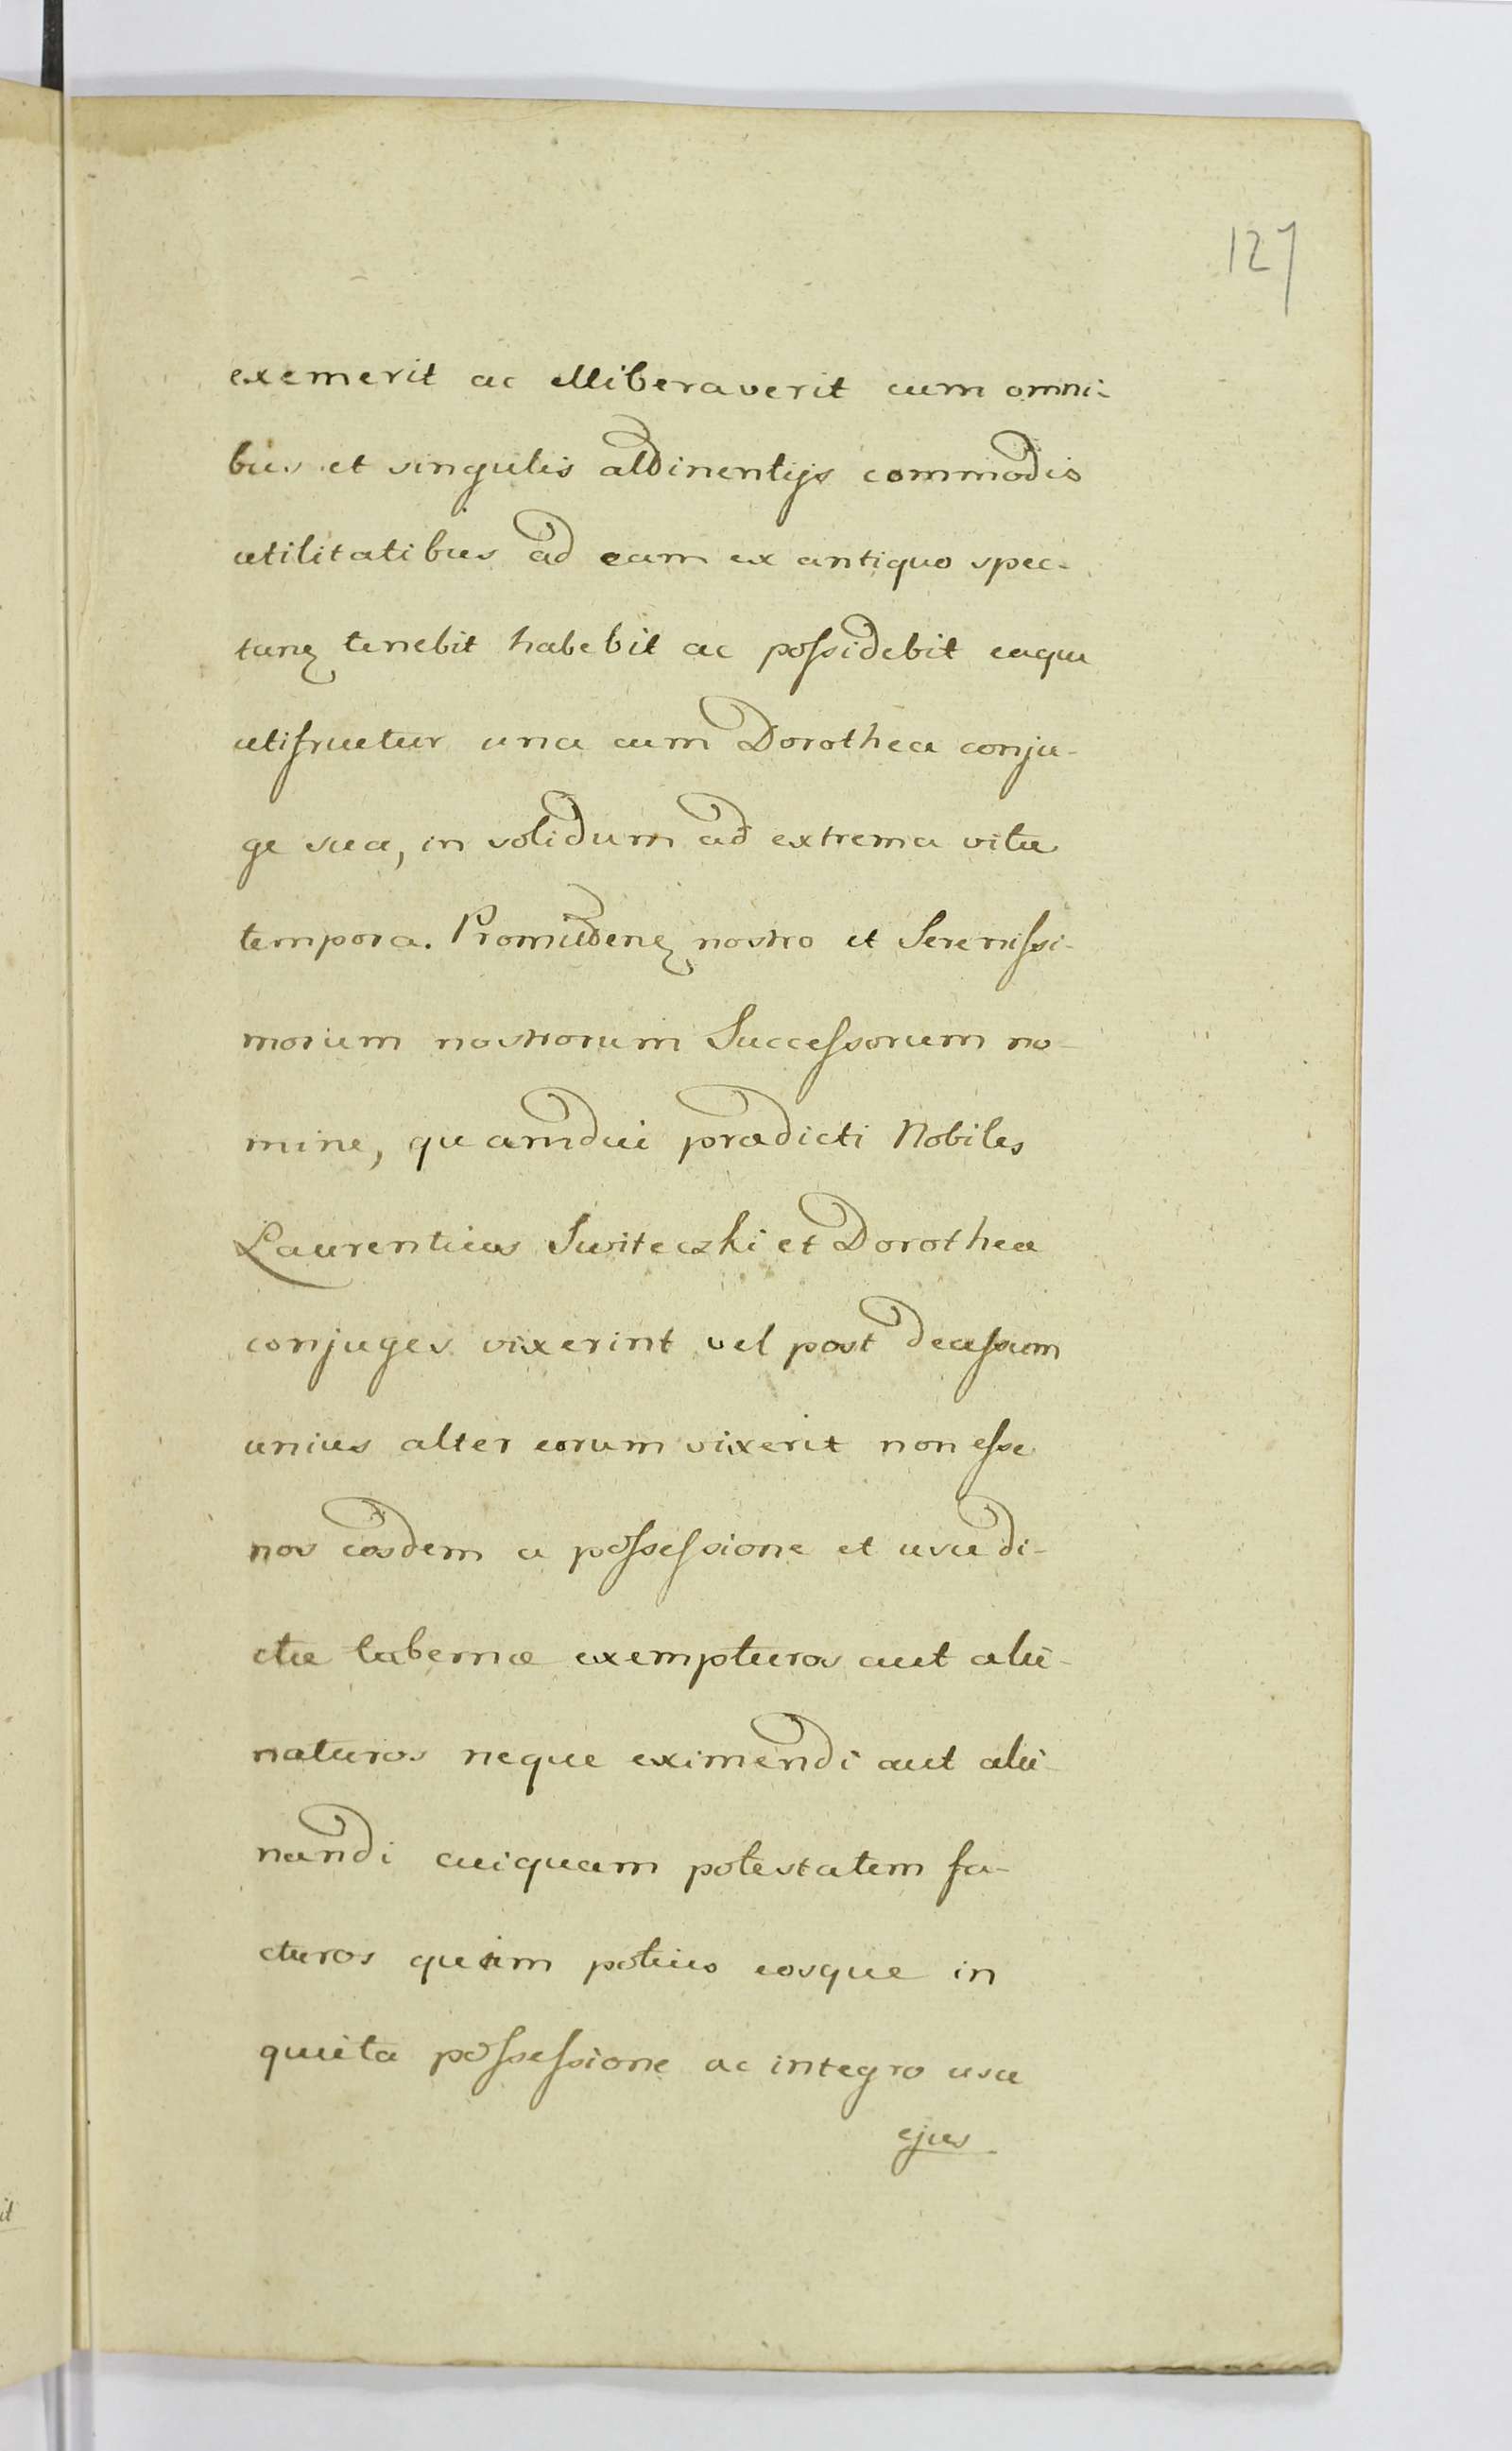 127
exemerit ac elliberaverit cum omni-
bus et singulis attinentijs commodis
utilitatibus ad eam ex antiquo spec-
tanȝ tenebit habebit ac possidebit eaque
utifruetur una cum Dorothea conju-
ge sua, in solidum ad extrema vitæ
tempora. nostro et Serenissi-
morum nostrorum Successorum no-
mine, quamdui prædicti Nobiles
Laurentius Switeczki et Dorothea
conjuges vixerint vel post decessum
unius alter eorum vixerit non esse
nos eosdem a possessione et usu di-
ctæ tabernæ exempturos aut alie-
naturos neque eximendi aut alie-
nandi cuiquam potestatem fa-
cturos quam potius eosque in
quieta possessione ac integro usu
ejus
it